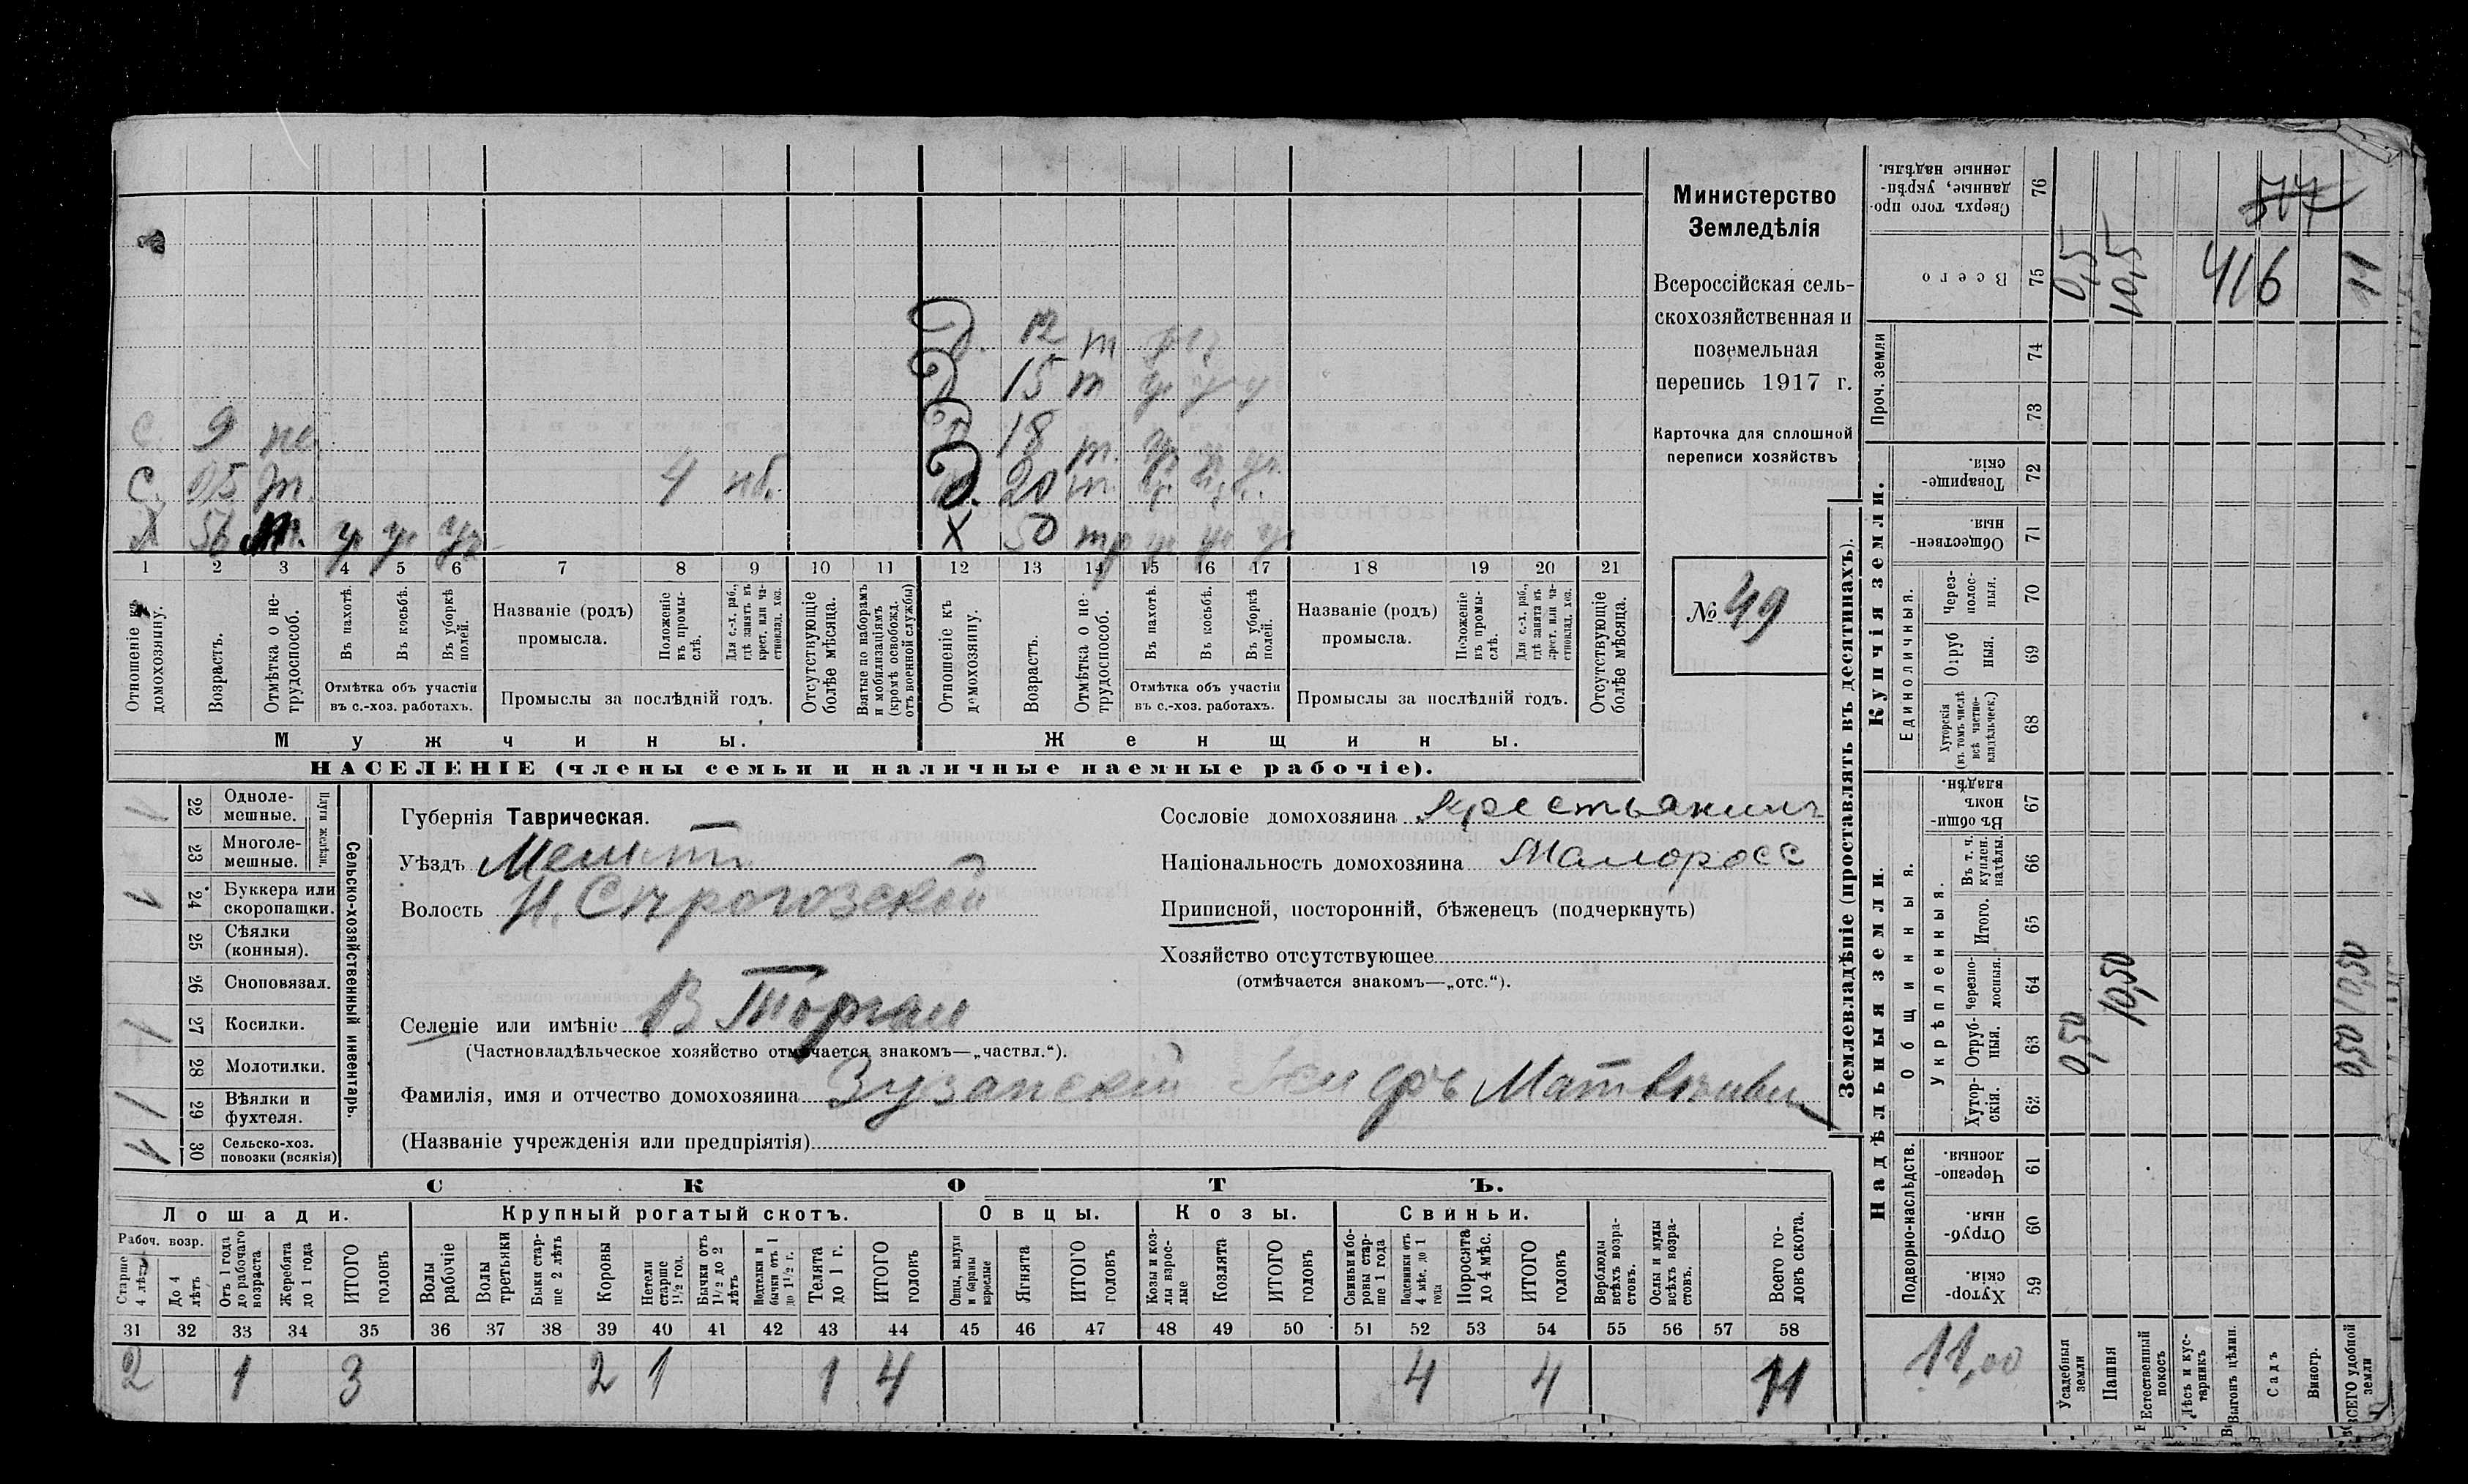 Министерство
Земледѣлія
Всероссійская сель-
скохозяйственная и
поземельная
перепись 1917 г.
Карточка для сплошной
переписи хозяйствъ
№ 49
Д. 12 т
Д 15 т у у у
Д 18 т. у. у. у.
Д. 20 т. у. у. у.
Х 50 у у у
С. 9 не.
С. 15 т. 4 чб.
Х 56 т. у у у
1 2 3 4 5 6 7 8 9 10 11 12 13 14 15 16 17 18 19 20 21
Отношеніе къ домохозяину.
Возрастъ.
Отмѣтка о не-трудоспособ.
Въ пахотѣ.
Въ косьбѣ.
Въ уборкѣ полей.
Отмѣтка объ участіи
въ с.-хоз. работахъ.
Названіе (родъ)
промысла.
Положеніе въ промы-слѣ.
Для с.-х. раб., гдѣ занятъ въ крест. или ча-стновлад. хоз.
Промыслы за послѣдній годъ.
Отсутствующіе болѣе мѣсяца.
Взятые по наборамъ и мобилизаціямъ (кромѣ освобожд. отъ военной службы)
Отношеніе къ домохозяину.
Возрастъ.
Отмѣтка о не-трудоспособ.
Въ пахотѣ.
Въ косьбѣ.
Въ уборкѣ полей.
Отмѣтка объ участіи
въ с.-хоз. работахъ.
Названіе (родъ)
промысла.
Положеніе въ промы-слѣ.
Для с.-х. раб., гдѣ занятъ въ крест. или ча-стновлад. хоз.
Промыслы за послѣдній годъ.
Отсутствующіе болѣе мѣсяца.
Мужчины.
Женщины.
НАСЕЛЕНІЕ (члены семьи и наличные наемные рабочіе).
Сельско-хозяйственный инвентарь.
Плуги желѣзн.
22 Одноле-мешные.
23 Многоле-мешные.
24 Буккера или скоропашки.
25 Сѣялки (конныя).
26 Сноповязал.
27 Косилки.
28 Молотилки.
29 Вѣялки и фухтеля.
30 Сельско-хоз. повозки (всякія)
Губернія Таврическая.
Уѣздъ Мелит
Волость Н. Сѣрогозской
Селеніе или имѣніе В Торгаи
(Частновладѣльческое хозяйство отмѣчается знакомъ—„частвл.“).
Фамилія, имя и отчество домохозяина Матвѣевич
(Названіе учрежденія или предпріятія)
Сословіе домохозяина крестьянинъ
Національность домохозяина Малоросс
Приписной, посторонній, бѣженецъ (подчеркнуть)
Хозяйство отсутствующее
(отмѣчается знакомъ—„отс.“).
СКОТЪ.
Лошади. Крупный рогатый скотъ. Овцы. Козы. Свиньи.
Рабоч. возр.
Старше 4 лѣтъ
До 4 лѣтъ
Отъ 1 года до рабочаго возраста
Жеребята до 1 года
ИТОГО головъ
Волы рабочіе
Волы третьяки
Быки стар-ше 2 лѣтъ
Коровы
Нетели старше 1½ год.
Бычки отъ 1½ до 2 лѣтъ
Подтелки и бычки отъ 1 до 1½ г.
Телята до 1 г.
ИТОГО головъ
Овцы, валухи и бараны взрослые
Ягнята
ИТОГО головъ
Козы и коз-лы взрос-лые
Козлята
ИТОГО головъ
Свиньи и бо-ровы стар-ше 1 года
Подсвинки отъ 4 мѣс. до 1 года
Поросята до 4 мѣс.
ИТОГО головъ
Верблюды всѣхъ возра-стовъ.
Ослы и мулы всѣхъ возра-стовъ.
Всего го-ловъ скота.
31 32 33 34 35 36 37 38 39 40 41 42 43 44 45 46 47 48 49 50 51 52 53 54 55 56 57 58
2 1 3 2 1 1 4 4 4 11
Землевладѣніе (проставлять въ десятинахъ).
Надѣльныя земли.
Купчія земли.
Проч. земли
Подворно-наслѣдств.
Общинныя.
Укрѣпленныя.
Единоличныя.
Сверхъ того про-данные, укрѣп-ленные надѣлы. 76
Всего 75
74
73
Товарище-скія. 72
Обществен-ныя. 71
Через-полос-ныя. 70
Отруб ныя. 69
Хуторскія (въ томъ числѣ всѣ частно-владѣльческ.) 68
Въ общи-номъ владѣн. 67
Въ т. ч. куплен. надѣлы. 66
Итого. 65
Черезпо-лосныя. 64
Отруб-ныя. 63
Хутор-скія. 62
Черезпо-лосныя. 61
Отруб-ныя. 60
Хутор-скія. 59
Усадебныя земли
Пашня
Естественный покосъ
Лѣсъ и кус-тарникъ
Выгонъ цѣлин.
Садъ
Виногр.
ВСЕГО удобной земли
0,5
10,5
416
11
0,50
10,50
0,50
10,50
11,00